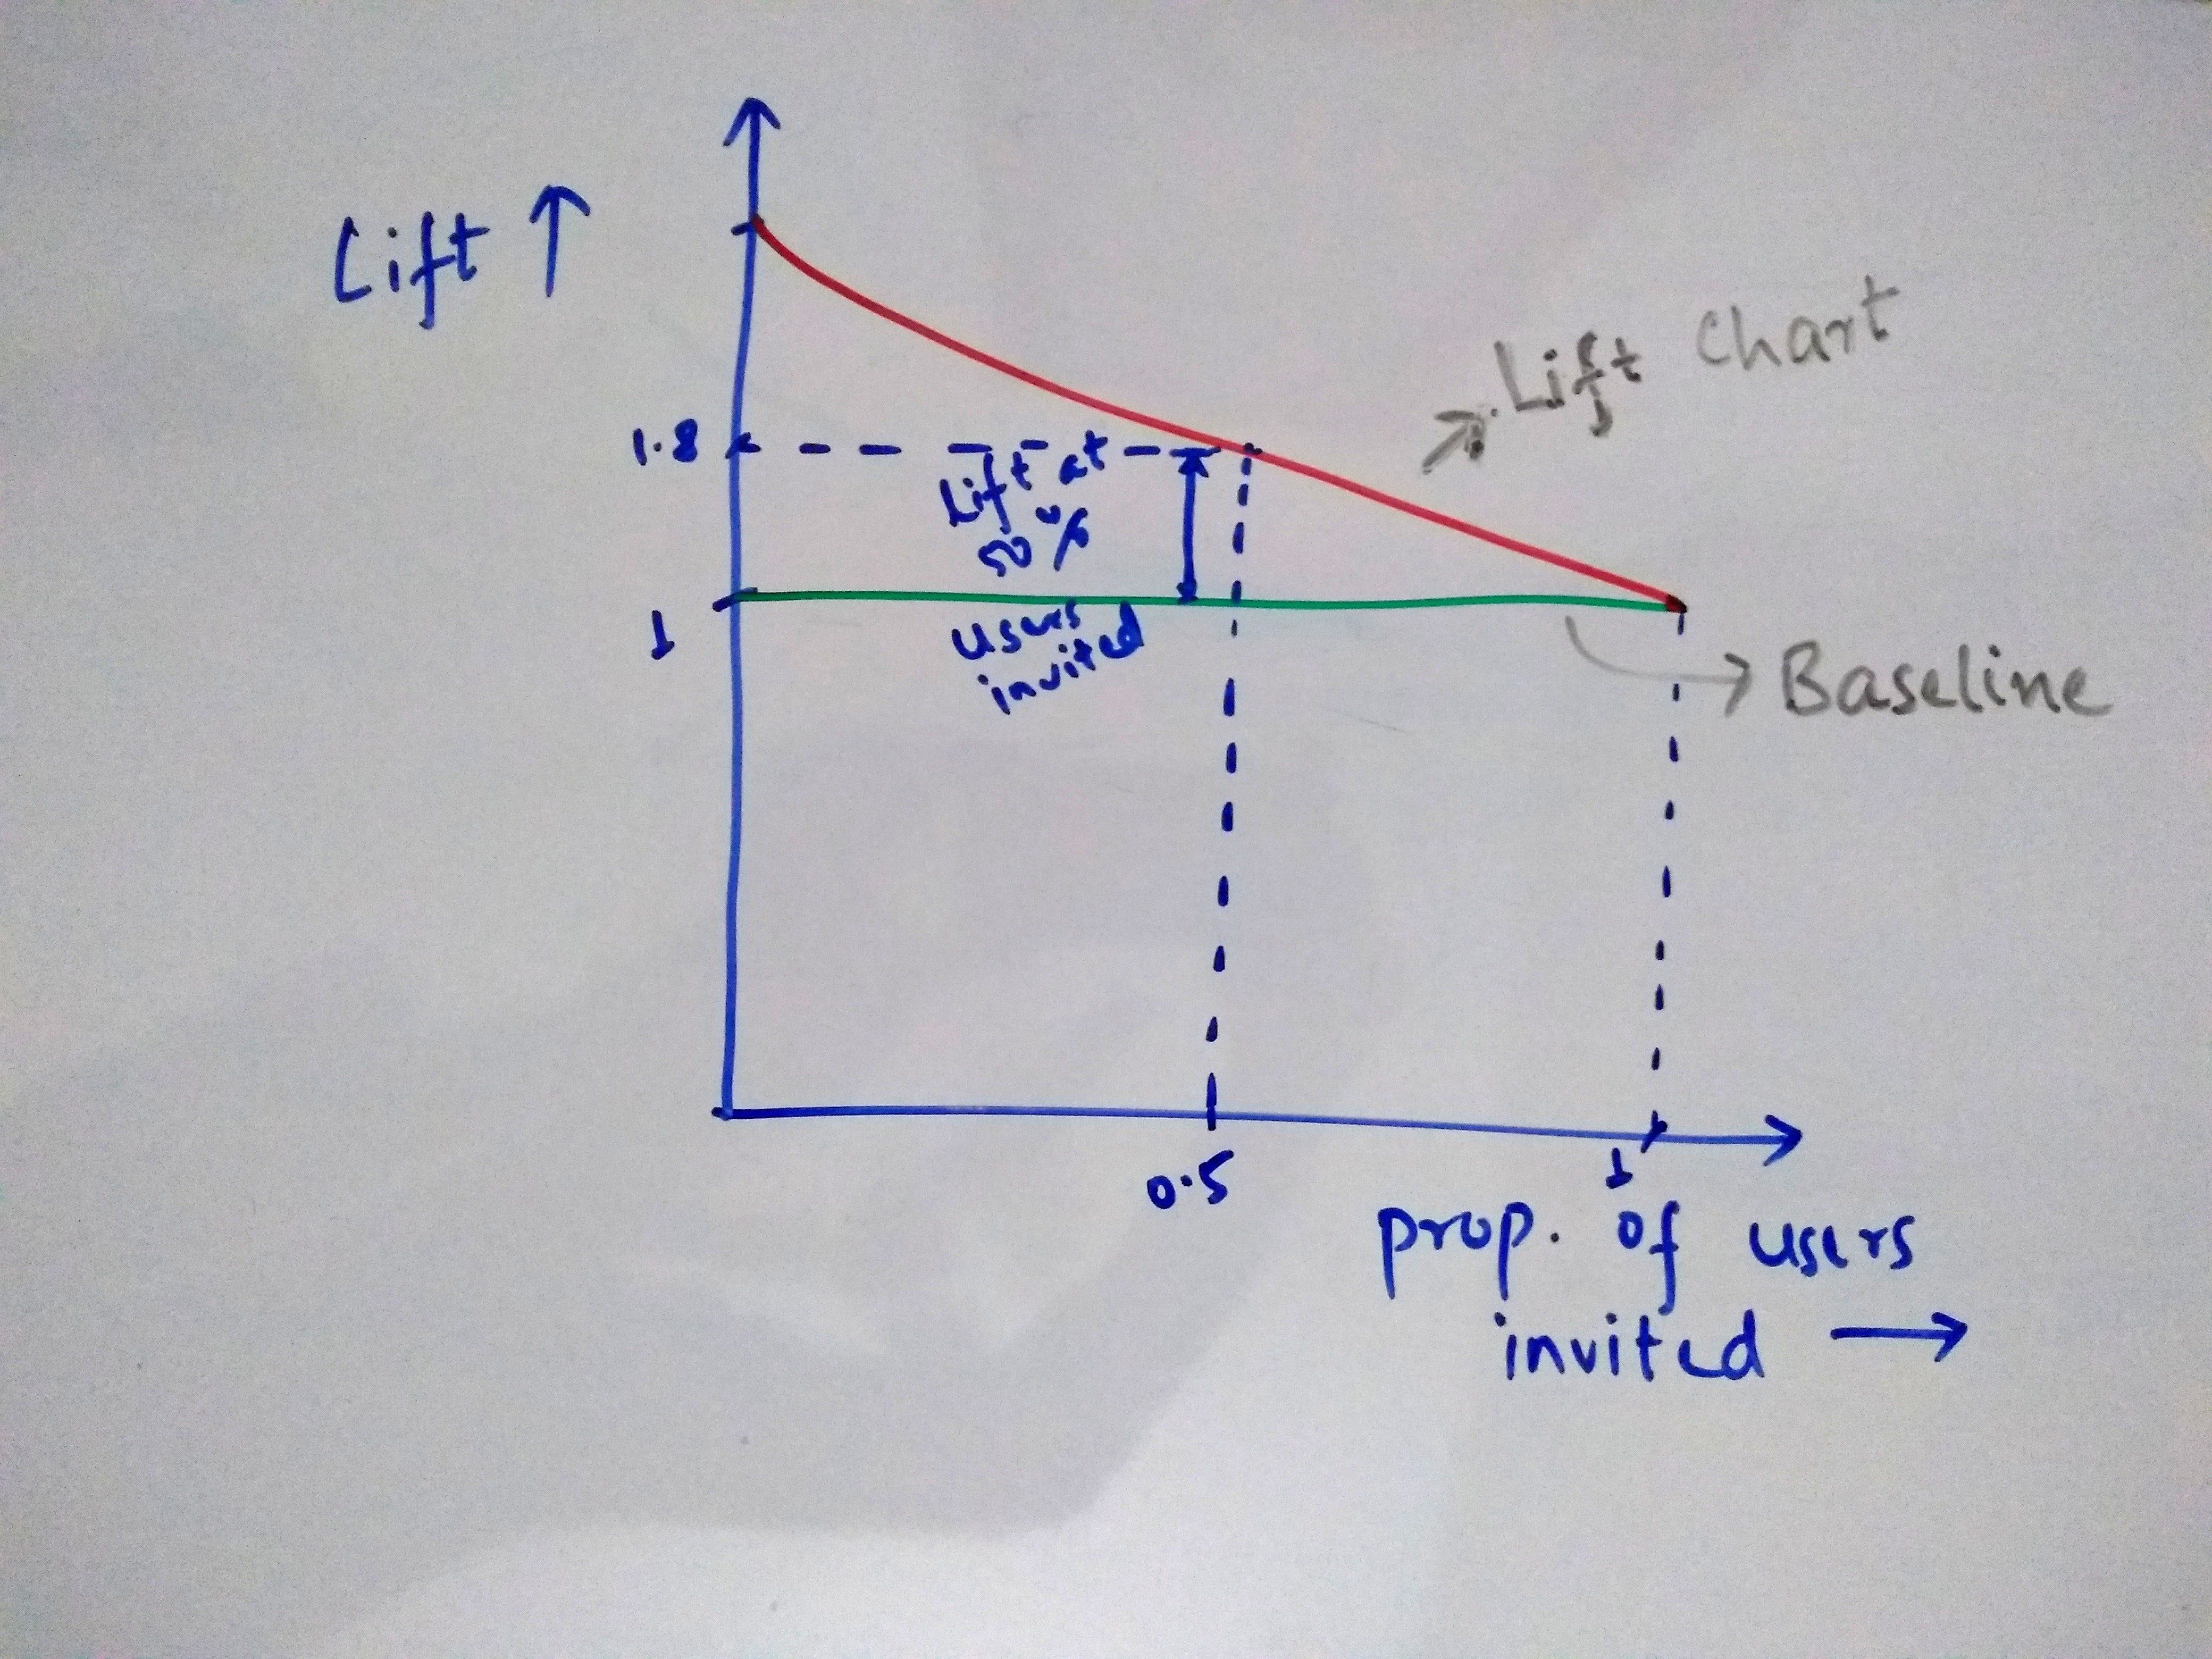 Lift ↑
Lift Chart
1.8
Lift at
50%
users
invited
1
Baseline
0.5
1
prop. of users
invited →